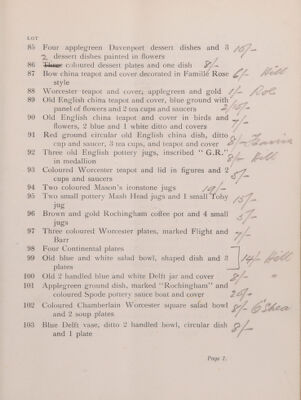 LOT
85 Four applegreen Davenport dessert dishes and 3 10/-
dessert dishes painted in flowers
86 2 Three coloured dessert plates and one dish 8/-
87 Bow china teapot and cover decorated in Famille Rose 6/- Hill
style
88 Worcester teapot and cover, applegreen and gold 1/-
89 Old English china teapot and cover, blue ground with
panel of flowers and 2 tea cups and saucers
90 Old English china teapot and cover in birds and 7/-
flowers, 2 blue and 1 white ditto and covers
91 Red ground circular old English china dish, ditto
cup and saucer, 3 tea cups, and teapot and cover 8/-
92 Three old English pottery jugs, inscribed "G.R." 8/- Hill
in medallion
93 Coloured Worcester teapot and lid in figures and 2
cups and saucers 5/-
94 Two coloured Mason's ironstone jugs 19/-
95 Two small pottery Mash Head jugs and 1 small Toby 15/-
jug
96 Brown and gold Rochingham coffee pot and 4 small 5/-
jugs
97 Three coloured Worcester plates, marked Flight and 7/-
Barr
98 Four Continental plates
99 Old blue and white salad bowl, shaped dish and 3 14/- Hill
plates
100 Old 2 handled blue and white Delft jar and cover 8/- "
101 Applegreen ground dish, marked "Rochingham" and
coloured Spode pottery sauce boat and cover 20/-
102 Coloured Chamberlain Worcester square salad bowl 8/- O'Shea
and 2 soup plates
103 Blue Delft vase, ditto 2 handled bowl, circular dish 8/-
and 1 plate
Page 7.